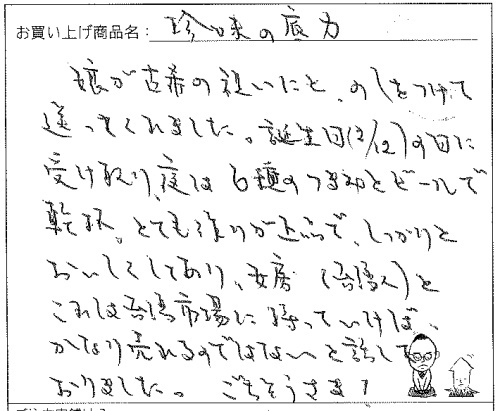 お買い上げ商品名：珍味の底力
娘が古希の祝いにと、のしをつけて
送ってくれました。誕生日(2/12)の日に
受け取り、夜は6種のつまみとビールで
乾杯。とても作りが上品で、しっかりと
おいしくしてあり、女房（ ）と
これは 市場に持っていけば、
かなり売れるのではないかと話して
おりました。 ごちそうさま！